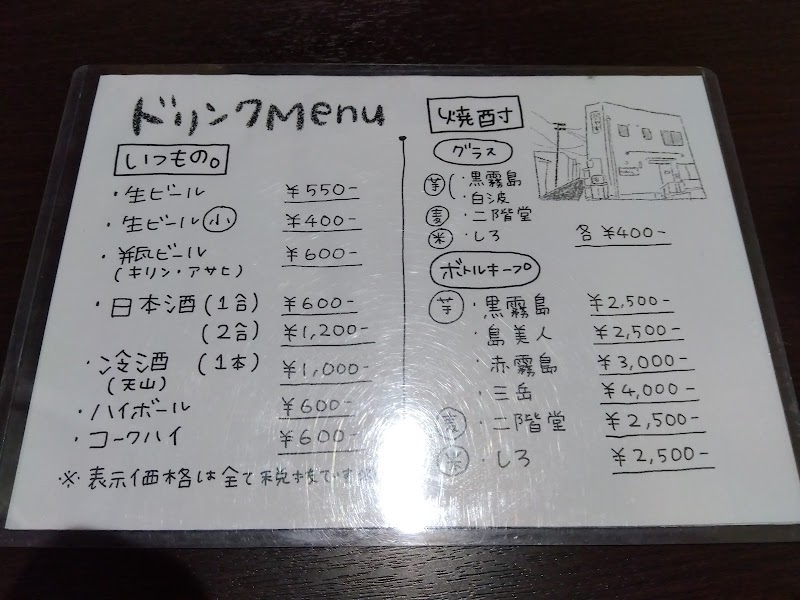 ドリンクMenu
いつもの。
・生ビール ¥550-
・生ビール小 ¥400-
・瓶ビール ¥600-
(キリン・アサヒ)
・日本酒(1合) ¥600-
(2合) ¥1,200-
・冷酒(1本) ¥1,000-
(天山)
・ハイボール ¥600-
・コークハイ ¥600-
※表示価格は全て税抜です※
焼酎
グラス
芋・黒霧島
・白波
麦・二階堂
米・しろ 各¥400-
ボトルキープ
芋・黒霧島 ¥2,500-
・島美人 ¥2,500-
・赤霧島 ¥3,000-
・三岳 ¥4,000-
麦・二階堂 ¥2,500-
米・しろ ¥2,500-